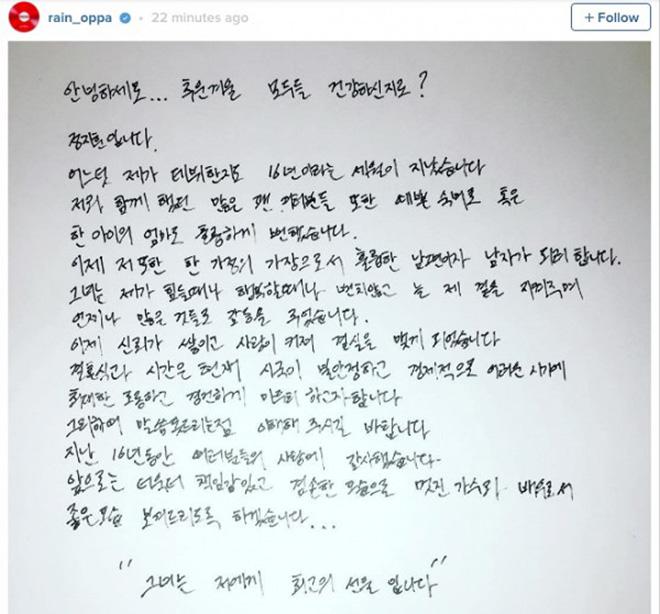 rain_oppa · 22 minutes ago
+ Follow
안녕하세요... 추운겨울 모두들 건강하신지요?
정지훈입니다.
어느덧 제가 데뷔한지도 16년이라는 세월이 지났습니다
저와 함께 했던 많은 팬 여러분들 또한 예쁜 숙녀로 혹은
한 아이의 엄마로 훌륭하게 변했습니다.
이제 저 또한 한 가정의 가장으로서 훌륭한 남편이자 남자가 되려 합니다.
그녀는 제가 힘들때나 행복할때나 변치않고 늘 제 곁을 지켜주며
언제나 많은 것들로 감동을 주었습니다.
이제 신뢰가 쌓이고 사랑이 커져 결실을 맺게 되었습니다
결혼식과 시간은 현재 시국이 불안정하고 경제적으로 어려운 시기에
최대한 조용하고 경건하게 하고자합니다
그리하여 말씀못드리는점 이해해 주시길 바랍니다
지난 16년동안 여러분들의 사랑에 감사했습니다.
앞으로는 더욱더 책임감있고 겸손한 모습으로 멋진 가수와 배우로서
좋은모습 보여드리도록 하겠습니다...
"그녀는 저에게 최고의 선물 입니다"